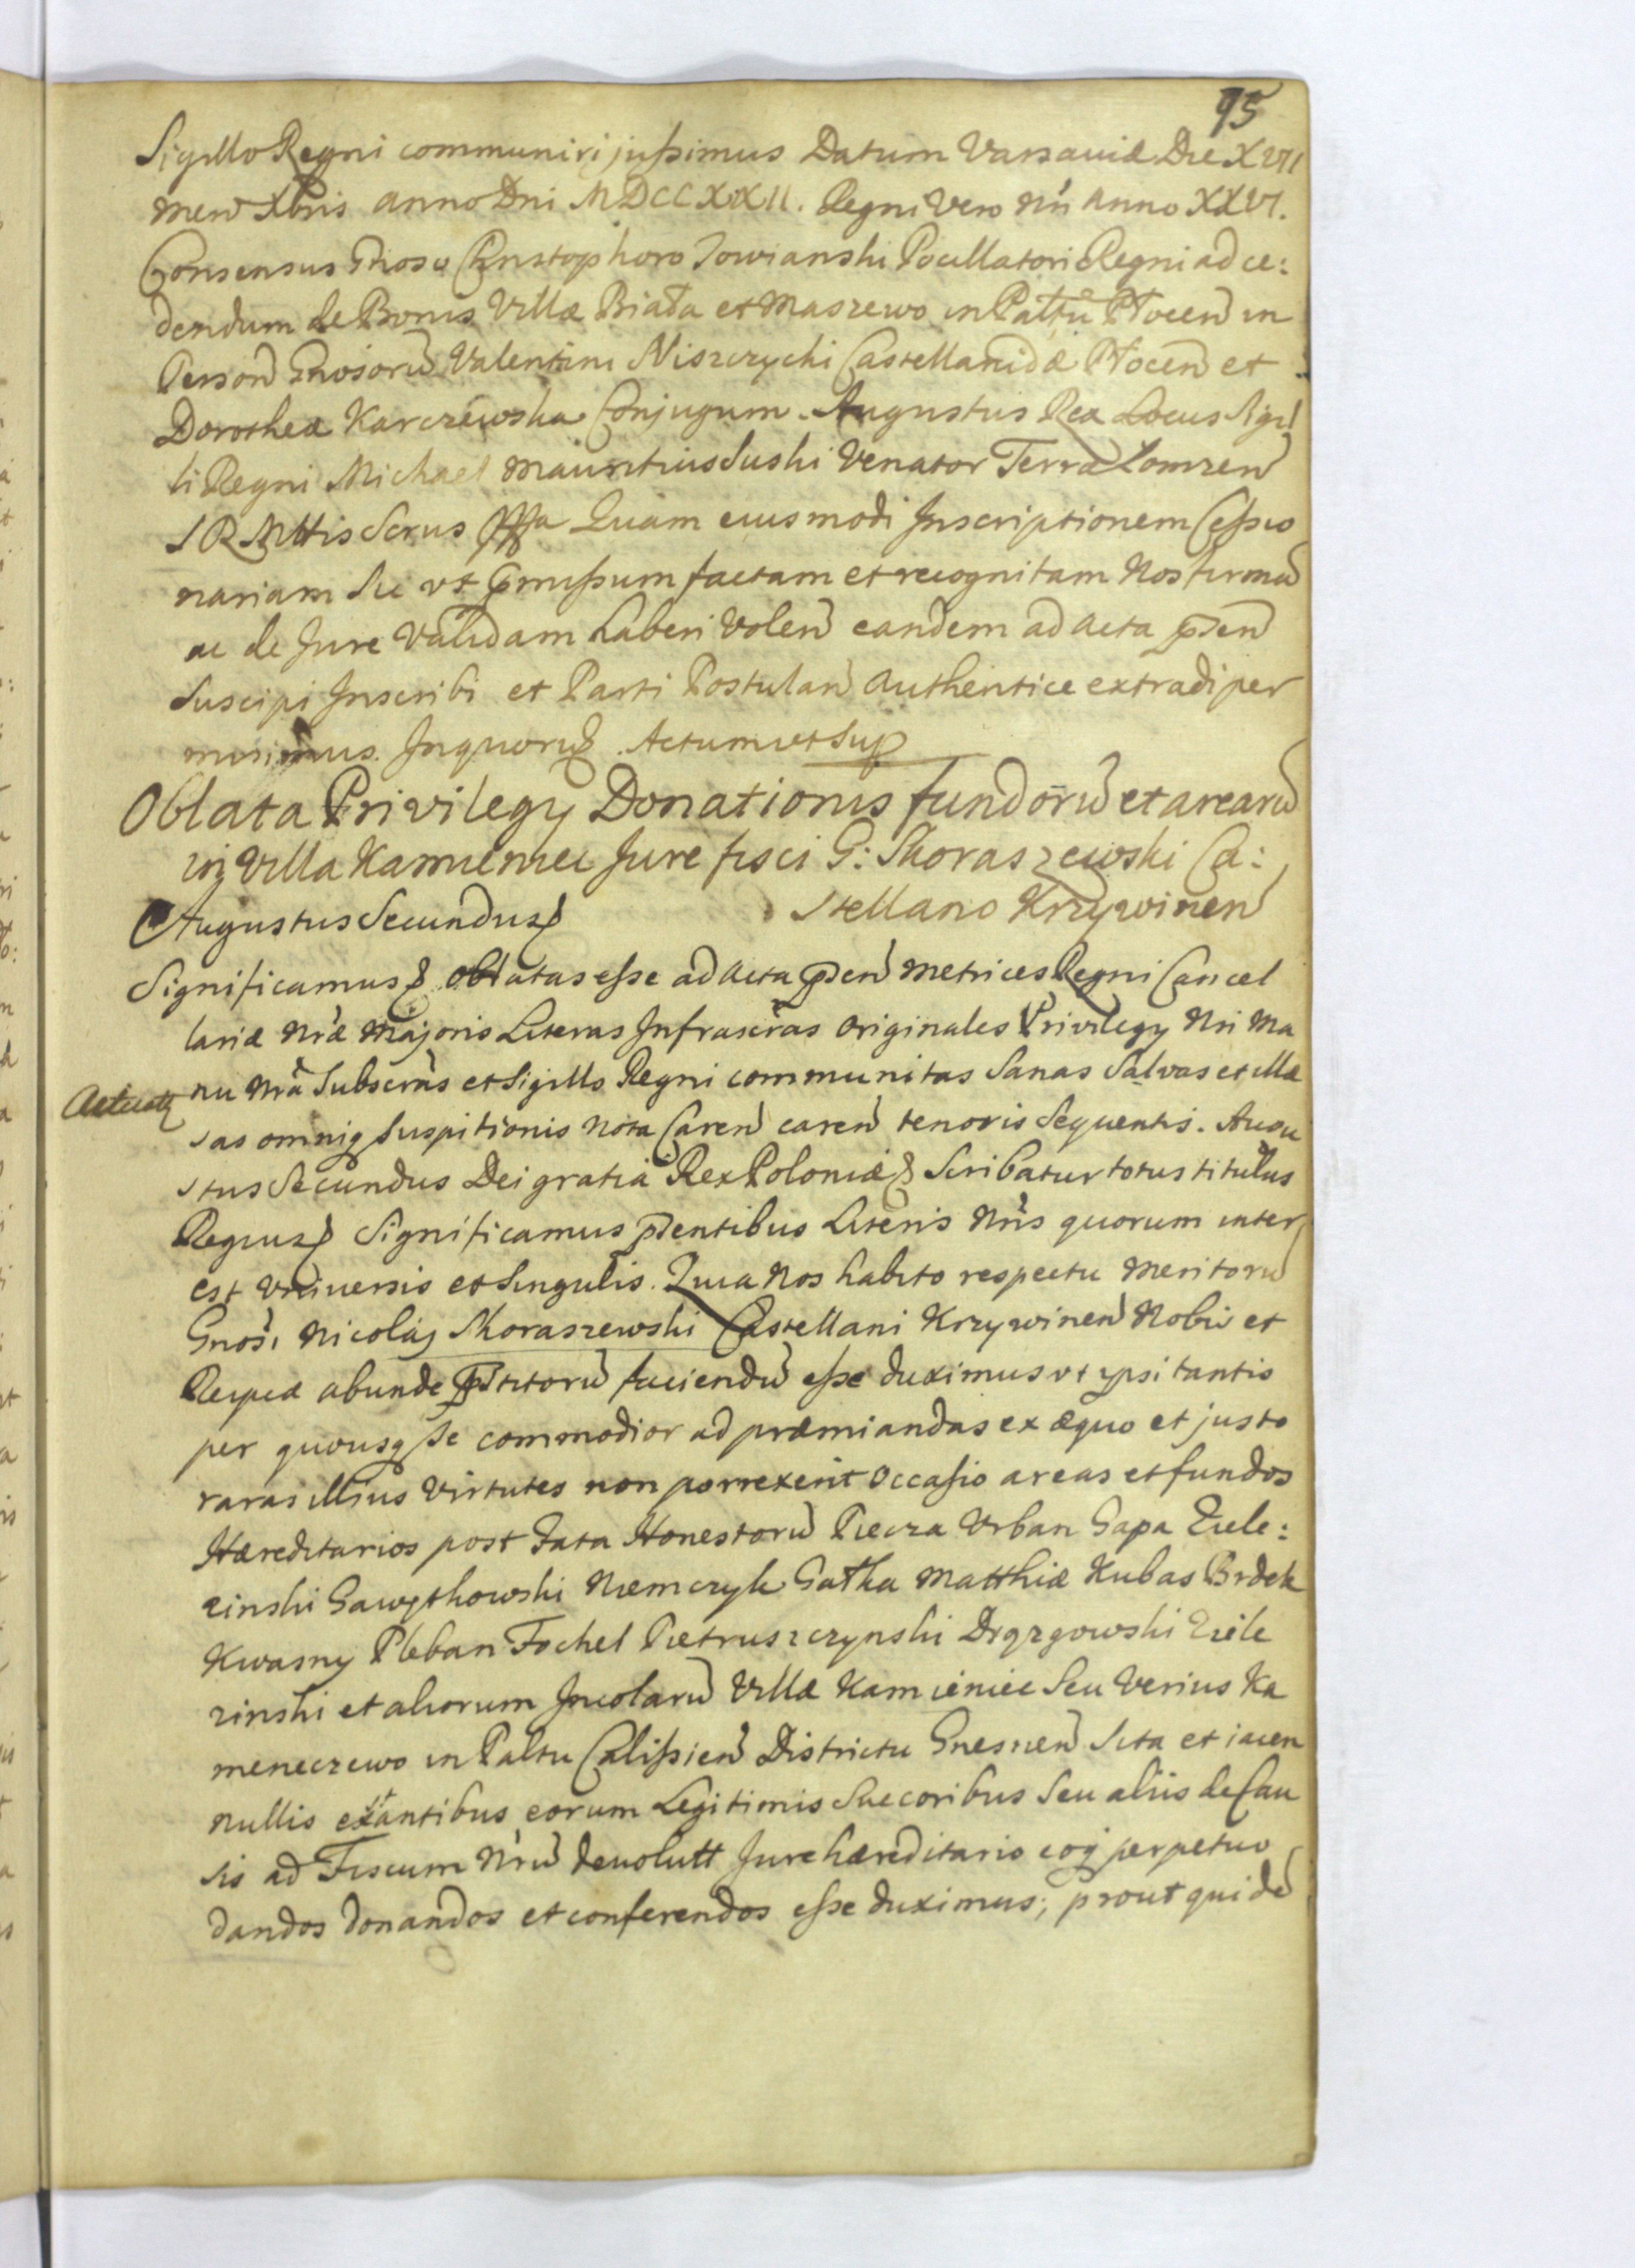 95
Sigillo Regni communiri jussimus Datum Varsaviæ Die XVII
Mens Xbris Anno Dni MDCCXXII. Regni Vero Nri Anno XXVI.
Consensus Gnoso Christophoro Towianski Pocillatori Regni ad ce:
dendum de Bonis Villæ Biała et Maszewo in Pałtu Płocen in
Person Gnosoru Valentini Niszczycki Castellanidæ Płocen et
Dorotheæ Karczewska Conjugum. Augustus Rex Locus Sigil
li Regni Michael Mauritius Suski Venator Terræ Łomzen
S R Mttis Scrus Quam eiusmodi Inscriptionem Cessio
nariam Sic ut præmissum factam et recognitam Nos firmā
ac de Jure Validam haberi Volen eandem ad Acta præsen
Suscipi Inscribi et Parti Postulan Authentice extradi per
misimus. In quoru Actum ut Sup
Oblata Privilegy Donationis fundorū et arearū
in Villa Kamieniec Jure fisci G: Skoraszewski Ca:
stellano Krzywinen
Augustus Secundus
Significamus Oblatas esse ad Acta præsen Metrices Regni Cancel
lariæ Nræ Majoris Literas Infrascras Originales Privilegy Nri Ma
nu Nra Subscras et Sigillo Regni communitas Sanas Salvas et illæ
sas omniq suspitionis nota Caren earen tenoris Sequentis. Augu
stus Secundus Dei gratia Rex Poloniæ Scribatur totus titulus
Regius Significamus præsentibus Literis Nris quorum inter
est Universis et Singulis. Quia Nos habito respectu Meritorū
Gnosi Nicolaj Skoraszewski Castellani Krzywinen Nobis et
Reipcæ abunde præstitorū faciendū esse duximus ut ipsi tantis
per quousq se commodior ad præmiandas ex æquo et justo
raras illius Virtutes non porrexerit Occasio areas et fundos
Hæreditarios post Fata Honestorū Piecza Urban Gapa Ziele:
zinski Gawythowski Niemczyk Gałka Matthiæ Kubas Brdek
Kwasny Pleban Fochel Pietruszczynski Drązgowski Ziele
zinski et aliorum Incolarū Villæ Kamieniec Seu Verius Ka
mieneczewo in Paltu Calissien Districtu Gnesnen Sita et iacen
nullis extantibus eorum Legitimis Succoribus Seu aliis de Cau
sis ad Fiscum Nrū devolutt Jure hæreditario eoq perpetuo
dandos donandos et conferendos esse duximus; prout quidē